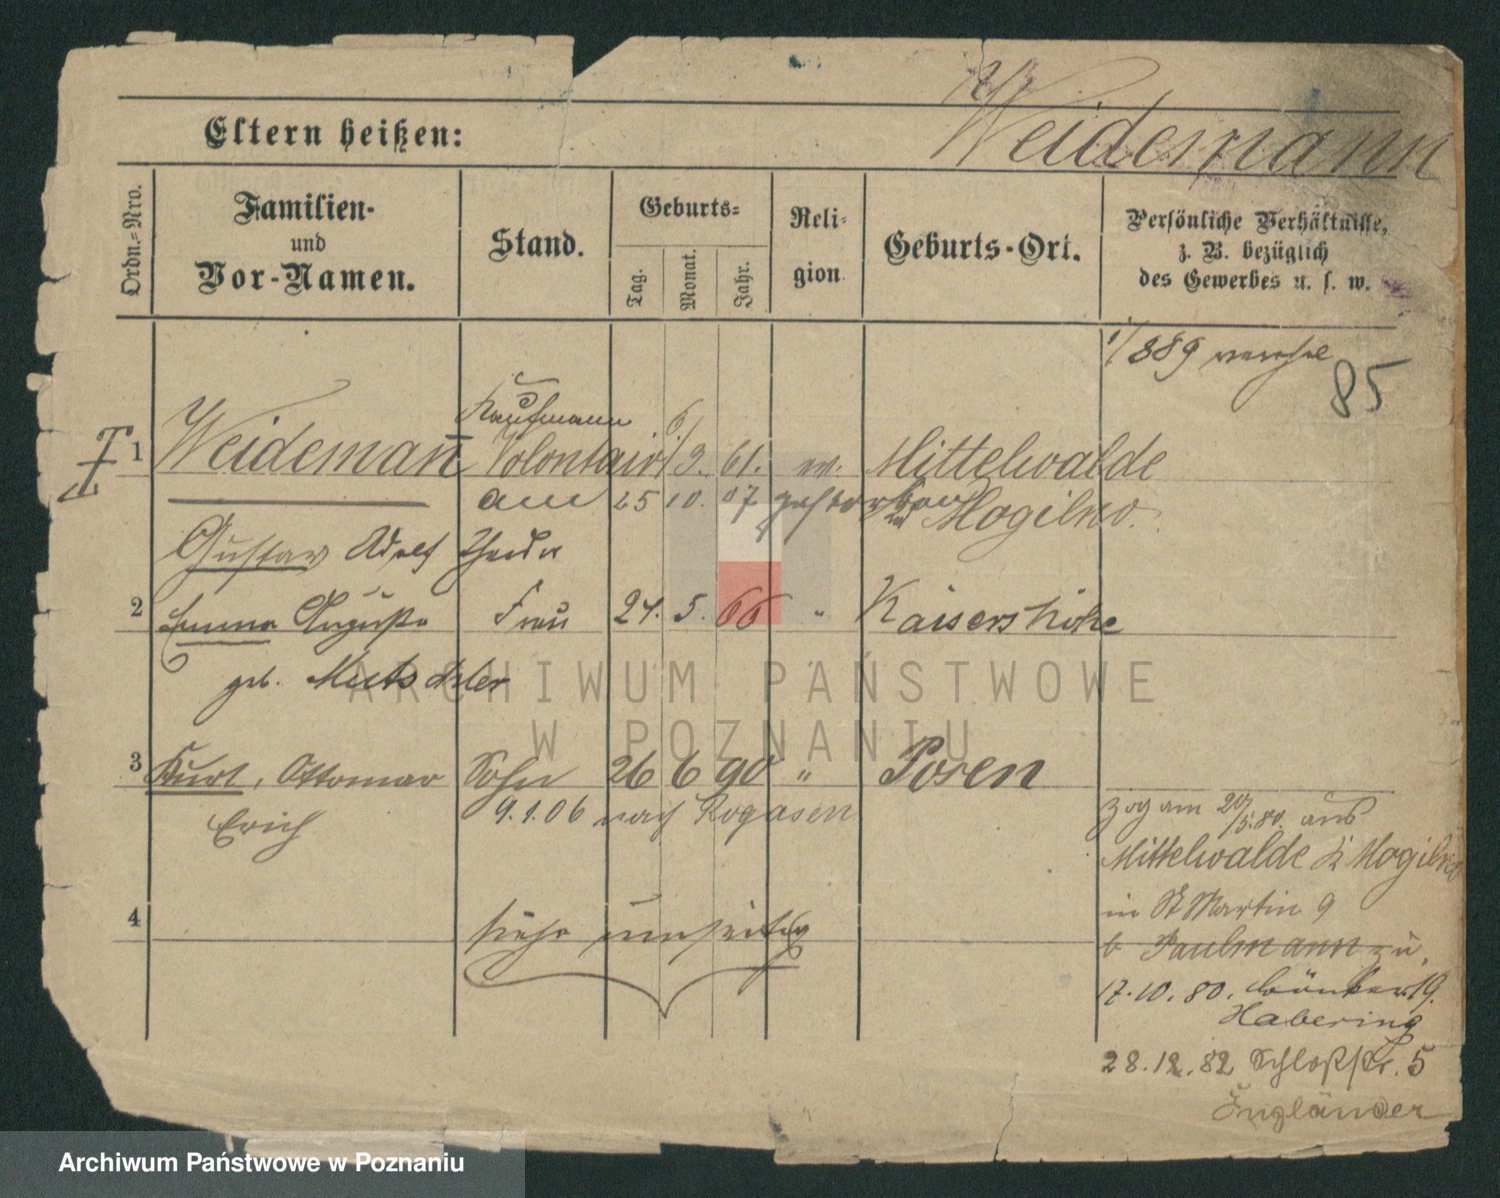 Weidemann
Eltern heißen:
Ordn.-Nro.
Familien-
und
Vor-Namen.
Stand.
Geburts-
Tag.
Monat.
Jahr.
Reli-
gion
Geburts-Ort.
Persönliche Verhältnisse,
z. B. bezüglich
des Gewerbes u. s. w.
1/889
85
Kaufmann
1 Weidemann Volontair 6/ 3. 61. ev. Mittelwalde
am 25 10. 07 gestorben in Mogilno.
Gustav Adolf Theodor
2 Emma Auguste Frau 24. 5. 66 " Kaisershöhe
geb.
3 Kurt, Ottomar Sohn 26 6 90 " Posen
Erich 9.1.06 nach Rogasen
4 siehe umseitig
Zog am 20/5.80. aus
Mittelwalde Kr Mogilno
in St Martin 9
b Paulmann zu,
17.10.80. 19.
Habering
28.12.82 Schloßstr. 5
Engländer
ARCHIWUM PAŃSTWOWE
W POZNANIU
Archiwum Państwowe w Poznaniu